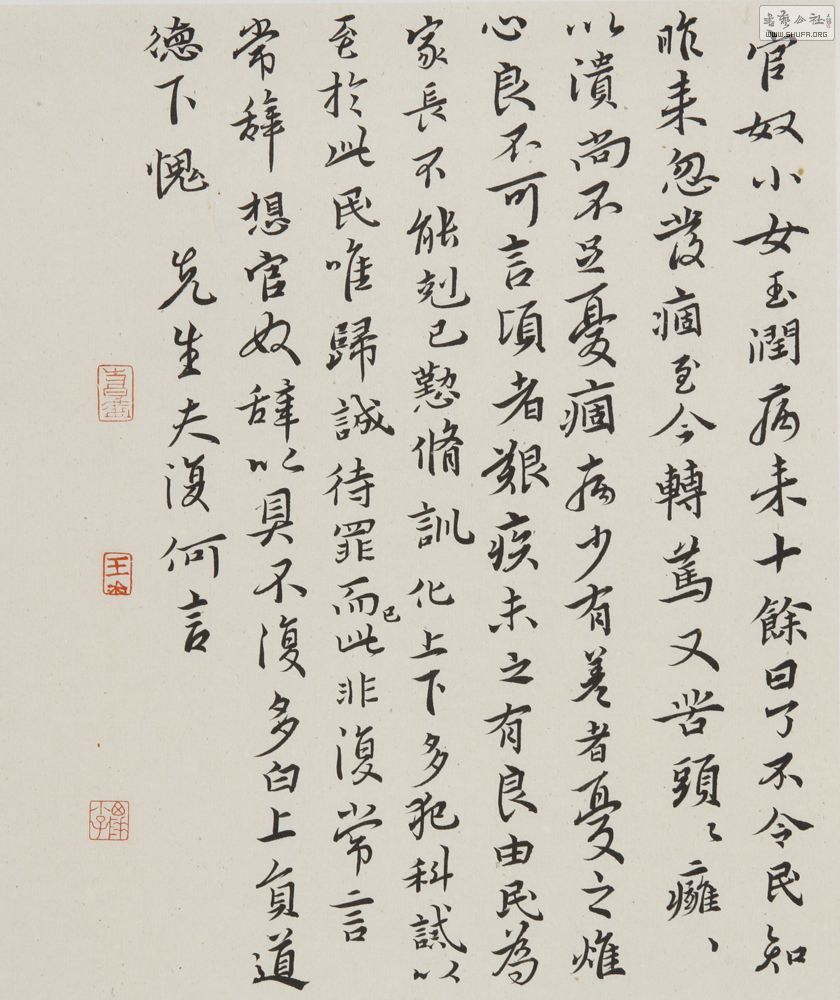 官奴小女玉潤病来十餘日了不令民知
昨来忽發痼至今轉篤又苦頭〻癰〻
以潰尚不足憂痼病少有差者憂之燋
心良不可言頃者艱疾未之有良由民為
家長不能剋己懃脩訓化上下多犯科誡以
至於此民唯歸誠待罪而已此非復常言
常辭想官奴辭以具不復多白上負道
德下愧先生夫復何言
書法公社
WWW.SHUFA.ORG